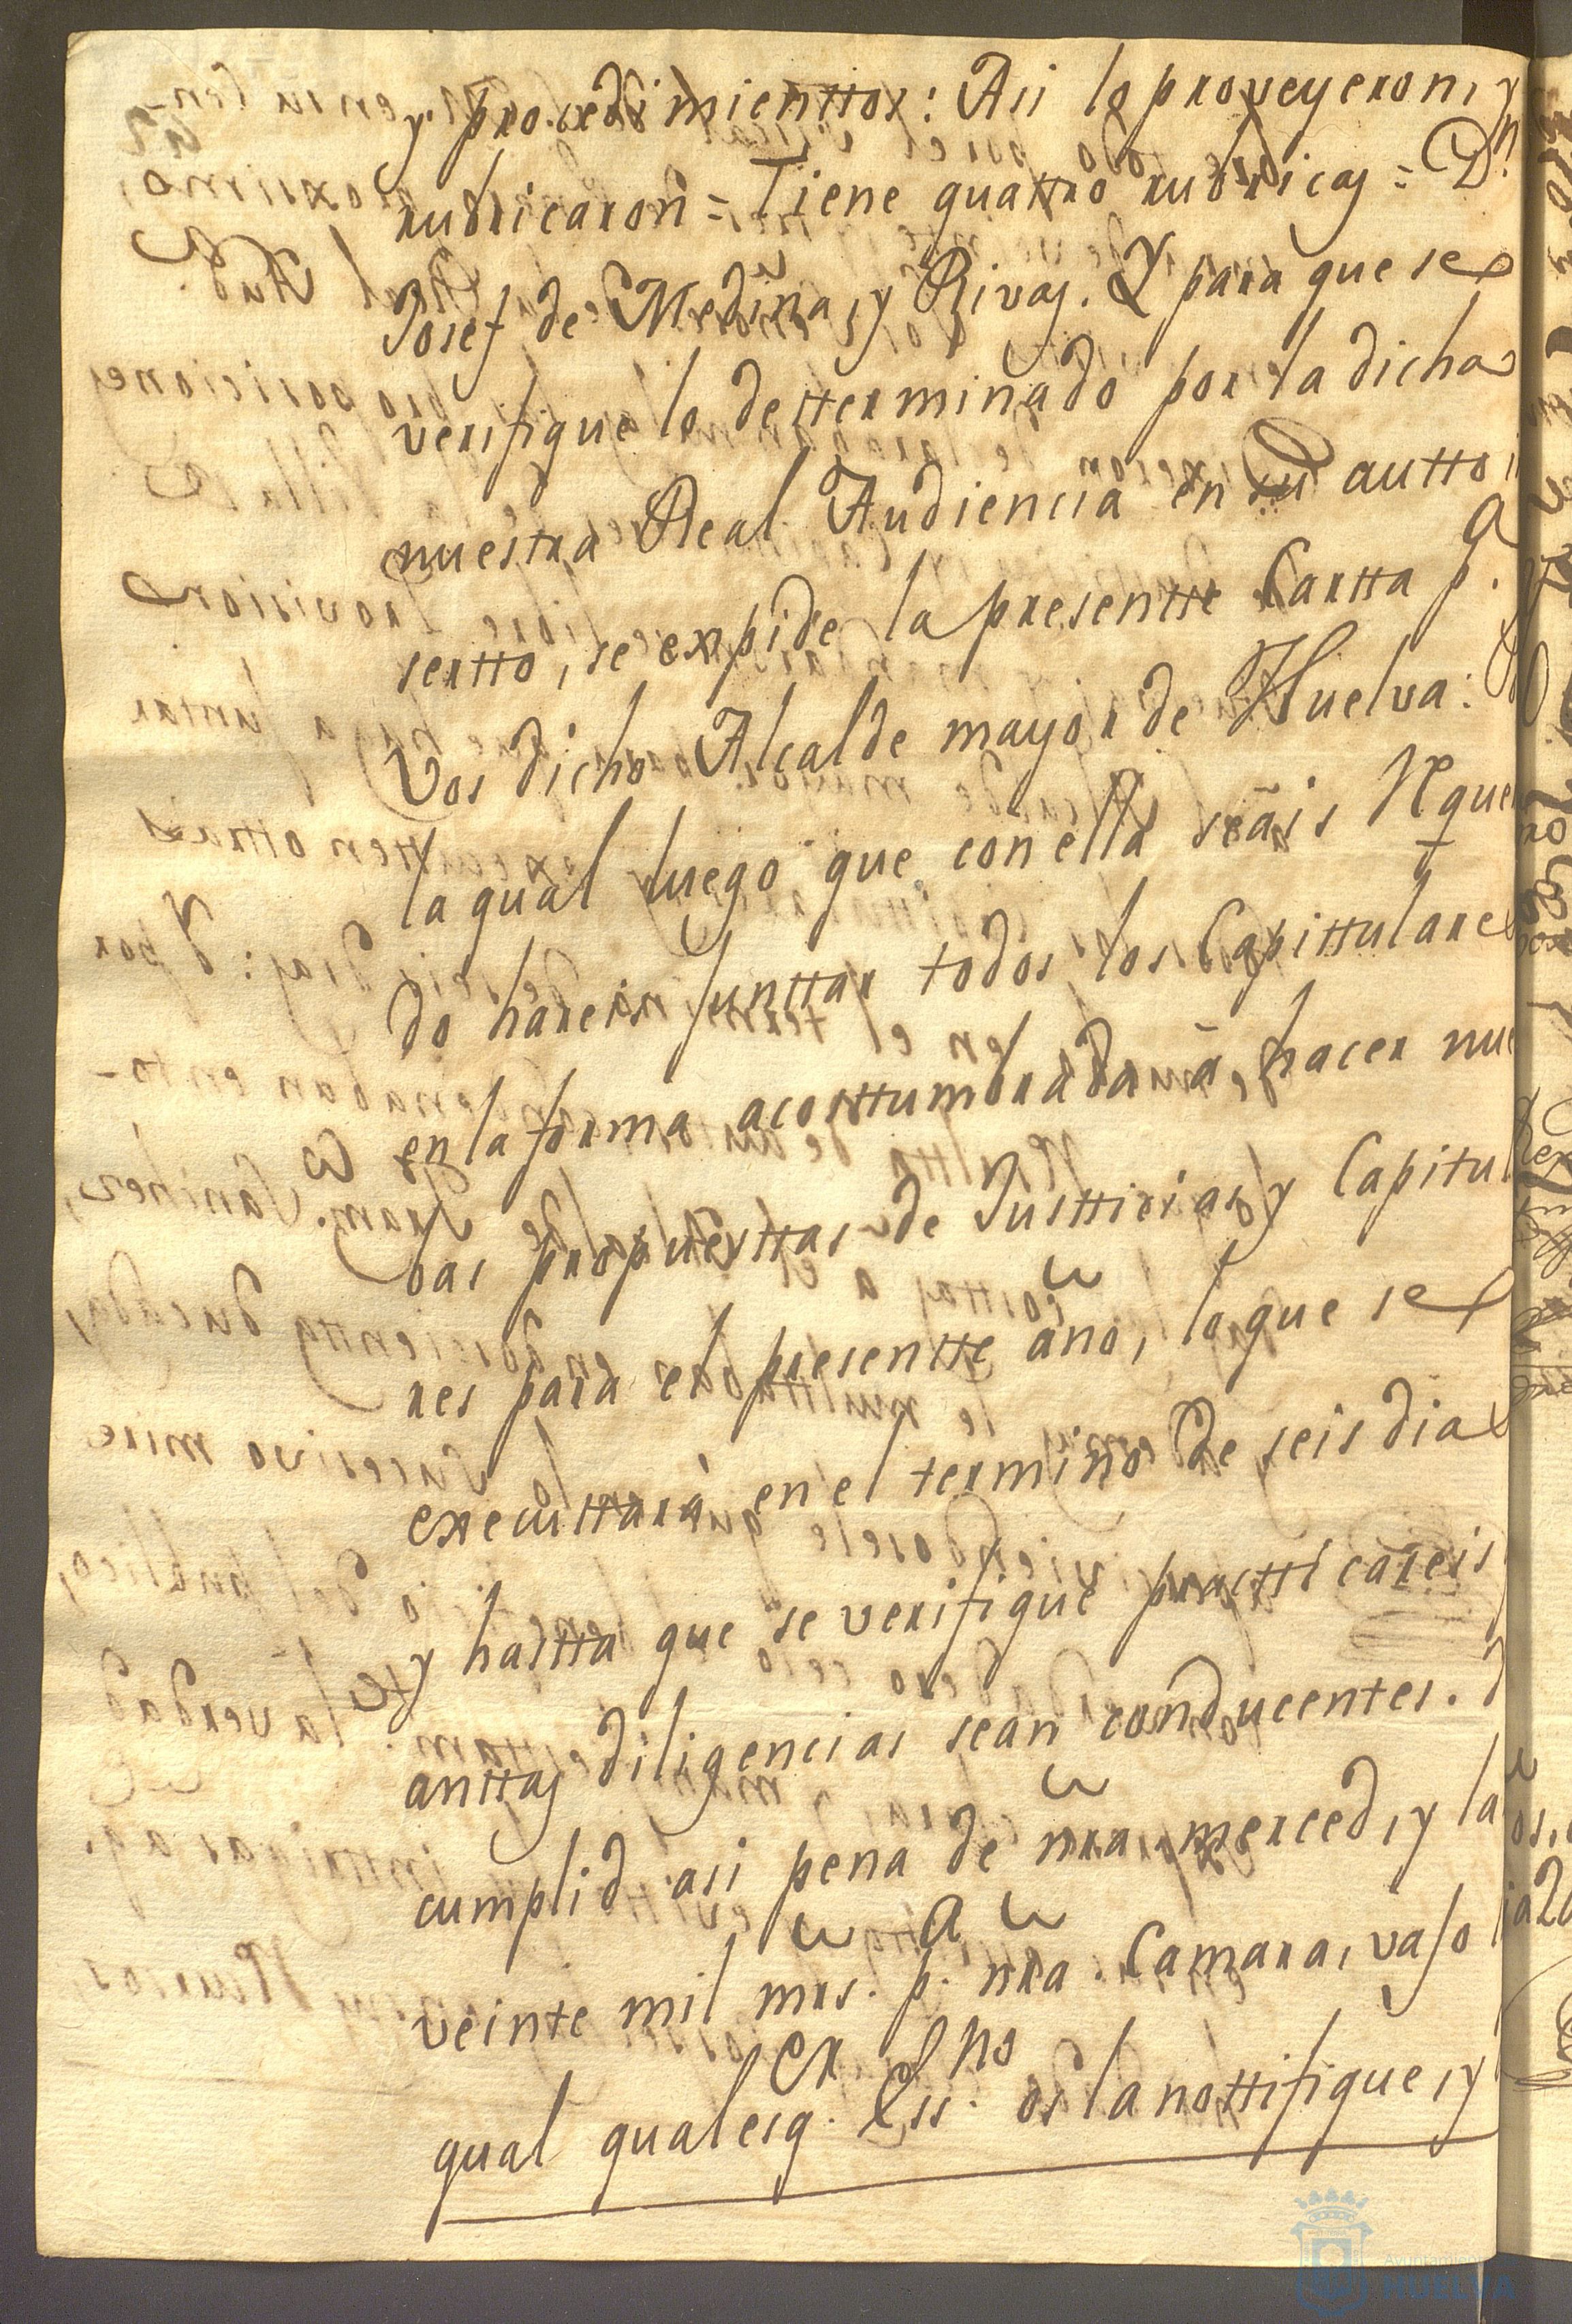 y procedimienttos: Asi lo proveyeron, y
rubricaron = Tiene quattro rubricas = Dn.
Josef de Medina, y Rivas. Y para que se
verifique lo detterminado por la dicha
nuestra Real Audiencia en su autto in
sertto, se expide la presentte Cartta pa.
Vos dicho Alcalde mayor de Huelva:
la qual luego que con ella seais Reque
do hareis junttar todos los Capittulares
en la forma acosttumbrada a hacer nue
bas propuesttas de Justticias, y Capitul
res para el presentte año, lo que se
executtará en el termino de seis dias
y hastta que se verifique practticareis
anttas diligencias sean conducentes.
cumplid asi pena de nra. merced, y la
veinte mil mrs. pa. nra. Camara, vajo
qual qualesqer. Essno. os la nottifique, y
Ayuntamiento
HUELVA